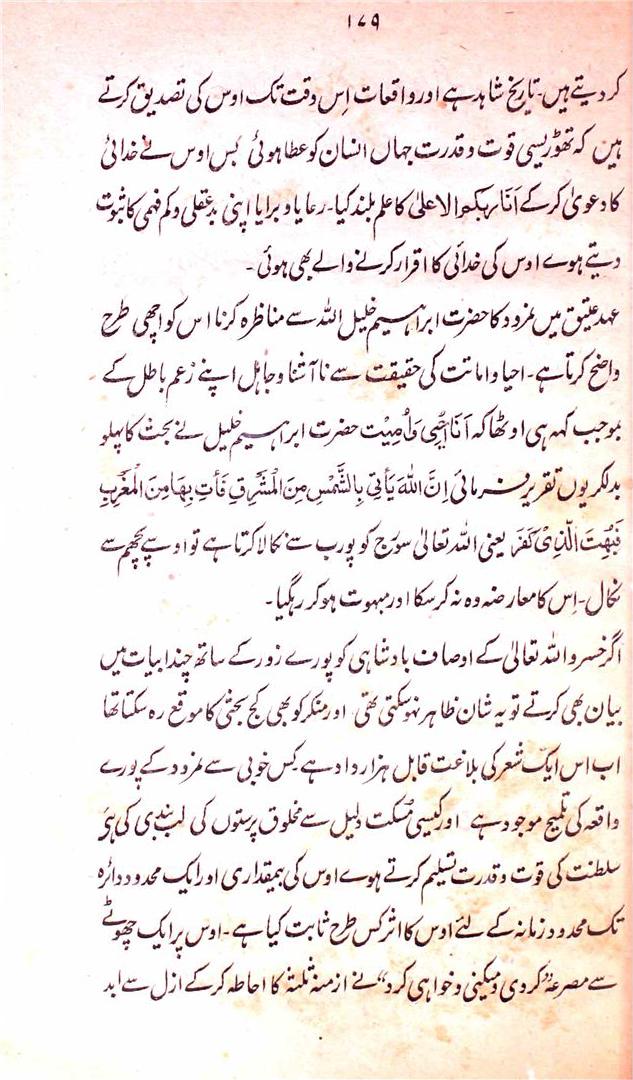 ۱۷۹
کر دیتے ہیں۔ تاریخ شاہد ہے اور واقعات اِس وقت تک اوس کی تصدیق کرتے
ہیں کہ تھوڑیسی قوت و قدرت جہاں انسان کو عطا ہوئی بس اوس نے خدائی
کا دعویٰ کر کے اَنَا ربکم الاعلیٰ کا علم بلند کیا۔ رعایا و برایا اپنی بد عقلی و کم فہمی کا ثبوت
دیتے ہوے اوس کی خدائی کا اقرار کرنے والے بھی ہوئی۔
عہد عتیق میں نمرود کا حضرت ابراہیم خلیل اللہ سے مناظرہ کرنا اس کو اچھی طرح
واضح کرتا ہے۔ احیا و اماتت کی حقیقت سے نا آشنا و جاہل اپنے زعم باطل کے
بموجب کہہ ہی اوٹھا کہ اَنَا اُحْیِی وَاُمِیْت حضرت ابراہیم خلیل نے بحث کا پہلو
بدلکر یوں تقریر فرمائی اِنَّ اللّٰہَ یَأتِی بِالشَّمْسِ مِنَ الْمَشْرِقِ فَأتِ بِھَا مِنَ الْمَغْرِبِ
فَبُھِتَ الَّذِیْ کَفَرَ یعنی اللہ تعالیٰ سورج کو پورب سے نکالا کرتا ہے تو اوسے پچھم سے
نکال۔ اِس کا معارضہ وہ نہ کر سکا اور مبہوت ہو کر رہگیا۔
اگر خسرو اللہ تعالیٰ کے اوصاف بادشاہی کو پورے زور کے ساتھ چند ابیات میں
بیان بھی کرتے تو یہ شان ظاہر نہوسکتی تھی اور منکر کو بھی کج بحثی کا موقع رہ سکتا تھا
اب اس ایک شعر کی بلاغت قابل ہزار داد ہے کس خوبی سے نمرود کے پورے
واقعہ کی تلمیح موجود ہے اور کیسی مسکت دلیل سے مخلوق پرستوں کی لب بندی کی ہی
سلطنت کی قوت و قدرت تسلیم کرتے ہوے اوس کی بیمقداری اور ایک محدود دائرہ
تک محدود زمانہ کے لئے اوس کا اثر کس طرح ثابت کیا ہے۔ اوس پر ایک چھوٹے
سے مصرعہ ”کردی و میکنی و خواہی کرد“ نے ازمنۂ ثلثہ کا احاطہ کر کے ازل سے ابد